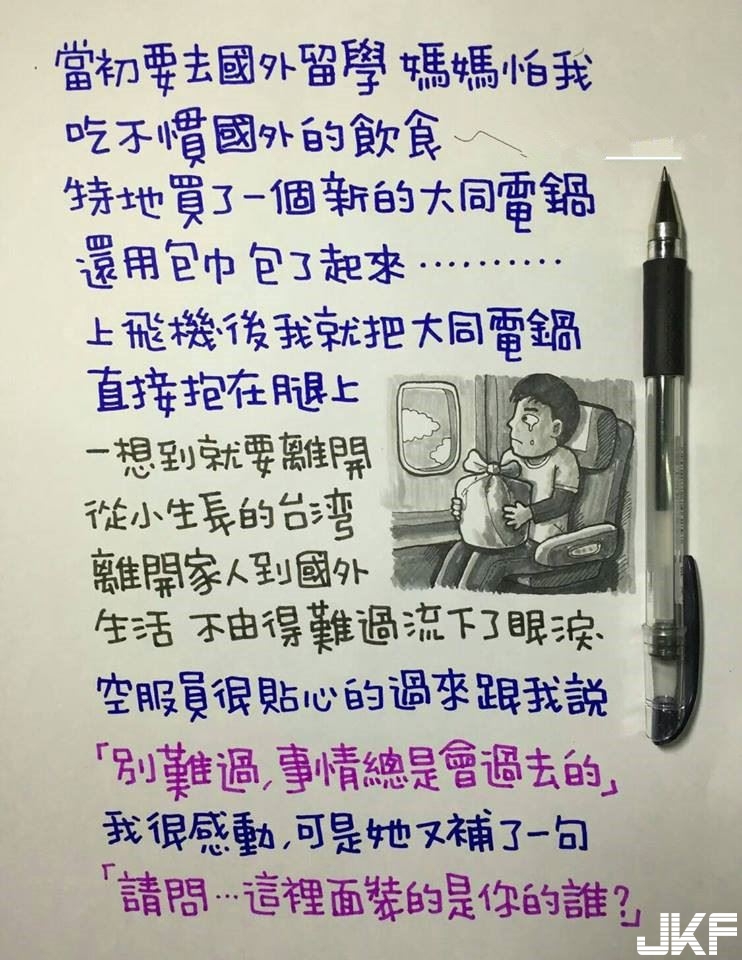 當初要去國外留學 媽媽怕我
吃不慣國外的飲食
特地買了一個新的大同電鍋
還用包巾包了起來‥‥‥‥‥
上飛機後我就把大同電鍋
直接抱在腿上
一想到就要離開
從小生長的台灣
離開家人到國外
生活 不由得難過流下了眼淚.
空服員很貼心的過來跟我說
「別難過,事情總是會過去的」
我很感動,可是她又補了一句
「請問…這裡面裝的是你的誰?」
JKF